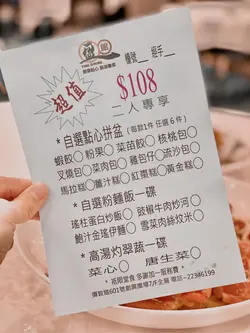 超值
檯號 經手
$108
二人專享
*自選點心拼盆(每款1件 任選6件)
蝦餃○ 粉果○ 菜苗餃○ 核桃包○
叉燒包○ 菜肉包○ 雞包仔○ 流沙包○
馬拉糕○ 薑汁糕○ 紅棗糕○ 黃金糕○
*自選粉麵飯一碟
瑤柱蛋白炒飯○ 豉椒牛肉炒河○
鮑汁金瑤伊麵○ 雪菜肉絲炆米○
*高湯灼翠蔬一碟
菜心○ 唐生菜○
祗限堂食 多謝加一服務費。
電話--22386199